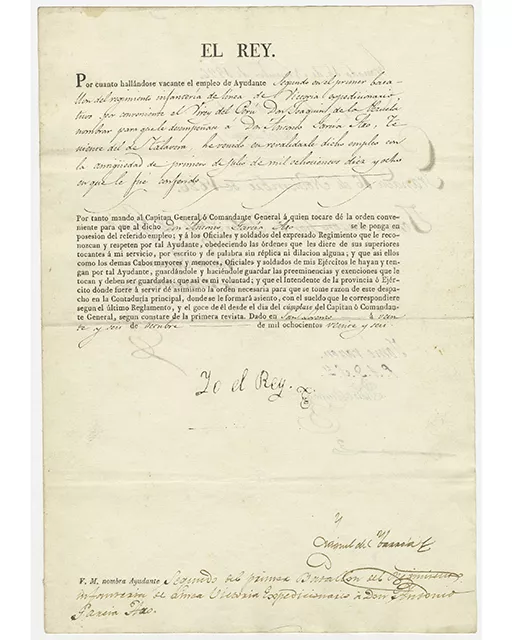 EL REY.
Por cuanto hallándose vacante el empleo de Ayudante Segundo en el primer bata-
llon del regimiento infantería de linea de Victoria Expedicionario,
tuvo por conveniente el Virey del Perú Don Joaquin de la Pezuela
nombrar para que le desempeñase á Don Antonio García Haro, Te-
niente del de Talavera he venido en revalidarle dicho empleo con
la antigüedad de primero de Julio de mil ochocientos diez y ocho
en que le fué conferido.
Por tanto mando al Capitan General ó Comandante General á quien tocare dé la orden conve-
niente para que al dicho Don Antonio García Haro se le ponga en
posesion del referido empleo; y á los Oficiales y soldados del expresado Regimiento que le reco-
nozcan y respeten por tal Ayudante, obedeciendo las órdenes que les diere de sus superiores
tocantes á mi servicio, por escrito y de palabra sin réplica ni dilacion alguna; y que asi ellos
como los demas Cabos mayores y menores, Oficiales y soldados de mis Ejércitos le hayan y ten-
gan por tal Ayudante, guardándole y haciéndole guardar las preeminencias y exenciones que le
tocan y deben ser guardadas: que asi es mi voluntad; y que el Intendente de la provincia ó Ejér-
cito donde fuere á servir dé asimismo la orden necesaria para que se tome razon de este despa-
cho en la Contaduría principal, donde se le formará asiento, con el sueldo que le correspondiere
segun el último Reglamento, y el goce de él desde el dia del cúmplase del Capitan ó Comandan-
te General, segun constare de la primera revista. Dado en San Lorenzo á vein
te y seis de de mil ochocientos veinte y seis
Yo el Rey.
Miguel de
V. M. nombra Ayudante Segundo del primer Batallon del Regimiento
infantería de Linea Victoria Expedicionario á Don Antonio
García Haro.